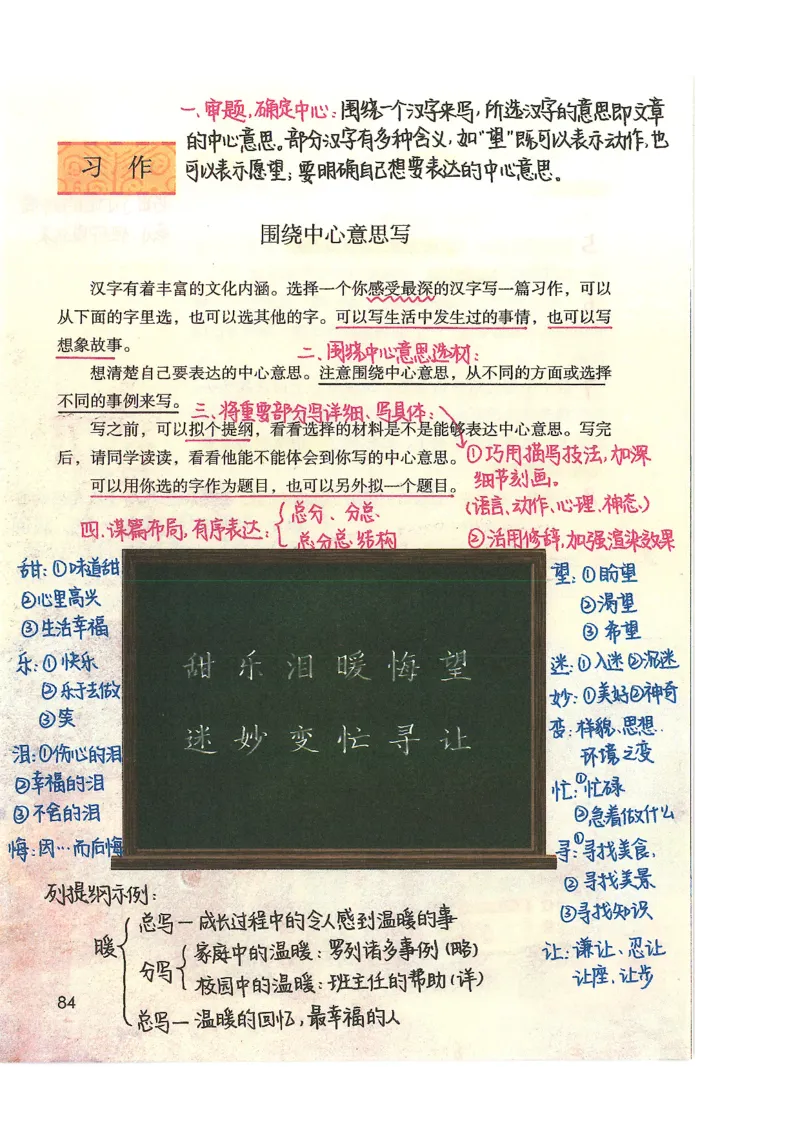 一、审题,确定中心:围绕一个汉字来写,所选汉字的意思即文章
的中心意思。部分汉字有多种含义,如"望"既可以表示动作,也
可以表示愿望;要明确自己想要表达的中心意思。
习 作
围绕中心意思写
汉字有着丰富的文化内涵。选择一个你感受最深的汉字写一篇习作,可以
从下面的字里选,也可以选其他的字。可以写生活中发生过的事情,也可以写
想象故事。
二、围绕中心意思选材:
想清楚自己要表达的中心意思。注意围绕中心意思,从不同的方面或选择
不同的事例来写。
三、将重要部分写详细、写具体:
写之前,可以拟个提纲,看看选择的材料是不是能够表达中心意思。写完
后,请同学读读,看看他能不能体会到你写的中心意思。
①巧用描写技法,加深
细节刻画。
(语言、动作、心理、神态)
②活用修辞,加强渲染效果
可以用你选的字作为题目,也可以另外拟一个题目。
四、谋篇布局,有序表达:
总分、分总
总分总结构
甜:①味道甜
②心里高兴
③生活幸福
乐:①快乐
②乐于去做
③笑
泪:①伤心的泪
②幸福的泪
③不舍的泪
悔:因…而后悔
甜 乐 泪 暖 悔 望
迷 妙 变 忙 寻 让
望:①盼望
②渴望
③希望
迷:①入迷②沉迷
妙:①美好②神奇
变:样貌、思想、
环境之变
忙:①忙碌
②急着做什么
寻:①寻找美食,
②寻找美景
③寻找知识
让:谦让、忍让
让座、让步
列提纲示例:
暖
总写—成长过程中的令人感到温暖的事
分写
家庭中的温暖:罗列诸多事例(略)
校园中的温暖:班主任的帮助(详)
总写—温暖的回忆,最幸福的人
84